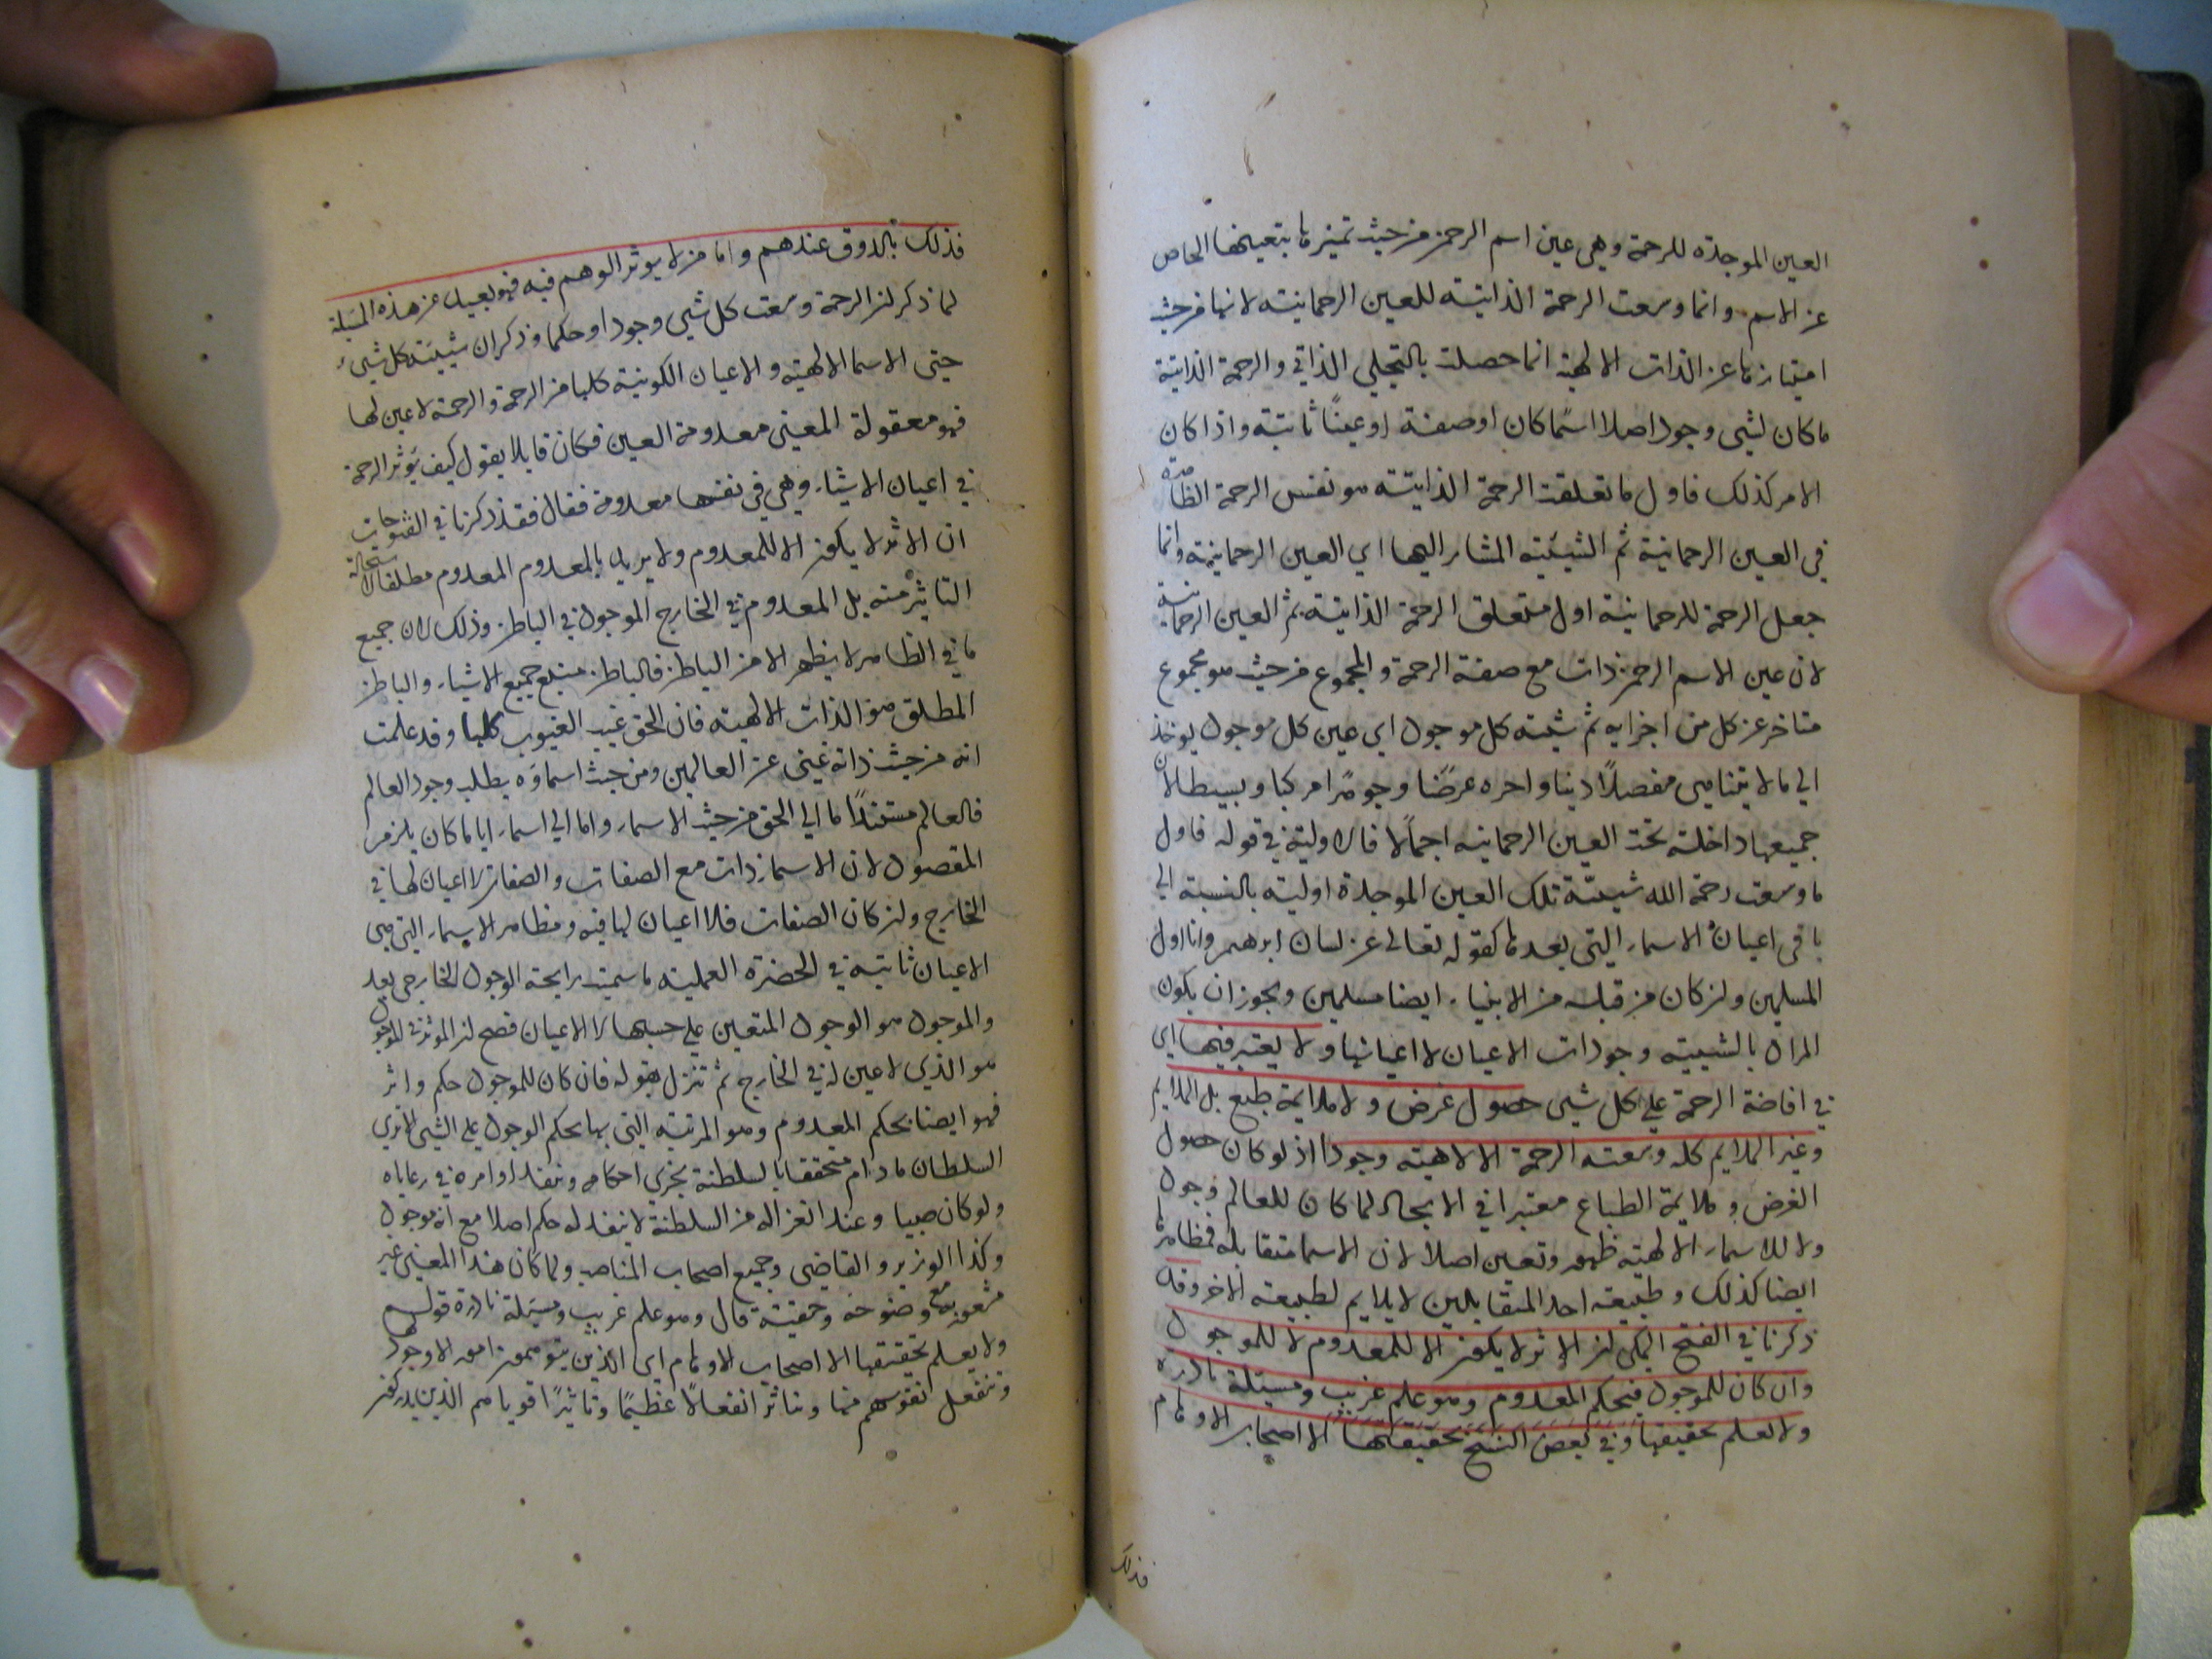 العين الموجدة للرحمة وهي عين اسم الرحمن من حيث تميزها بتعينها الخاص
عن الاسم وانما وسعت الرحمة الذاتية للعين الرحمانية لانها من حيث
امتيازها عن الذات الالهية انما حصلت بالتجلي الذاتي والرحمة الذاتية
ما كان لشي وجود اصلا اسمًا كان او صفة او عينًا ثابتة واذا كان
الامر كذلك فاول ما تعلقت الرحمة الذاتية هو نفس الرحمة الظاهرة
في العين الرحمانية ثم الشيئية المشار اليها اي العين الرحمانية وانما
جعل الرحمة للرحمانية اول متعلق الرحمة الذاتية ثم العين الرحمانية
لان عين الاسم الرحمن ذات مع صفة الرحمة والمجموع من حيث هو مجموع
متاخر عن كل من اجزايه ثم شيئية كل موجود اي عين كل موجود يوجد
الي ما لا يتناهى مفصلًا دنيا واخره عرضًا وجوهرًا مركبا وبسيطا لان
جميعها داخلة تحت العين الرحمانيه اجمالًا فالاولية في قوله فاول
ما وسعت رحمة الله شيئية تلك العين الموجدة اولية بالنسبة الي
باقي اعيان الاسماء التي بعدها كقوله تعالى عن لسان ابرهيم وانا اول
المسلمين ولن كان من قبله من الانبياء ايضا مسلمين ويجوز ان يكون
المراد بالشيئية وجودات الاعيان لا اعيانها ولا يعتبر فيها اي
في افاضة الرحمة علي كل شي حصول غرض ولا ملايمة طبع بل الملايم
وغير الملايم كله وسعته الرحمة الالاهية وجودا اذ لو كان حصول
الغرض وملايمة الطباع معتبرا في الايجاد لما كان للعالم وجود
ولا للاسماء الالهية ظهور وتعين اصلا لان الاسما متقابلة فمظاهرها
ايضا كذلك وطبيعة احد المتقابلين لا يلايم لطبيعة الاخر وقد
ذكرنا في الفتح المكي لن الاثر لا يكون الا للمعدوم لا للموجود
وان كان للموجود فبحكم المعدوم وهو علم غريب ومسئلة نادرة
ولا يعلم تحقيقها وفي بعض النسخ تحقيقها الا اصحاب الاوهام
فذلك
فذلك بالذوق عندهم واما من لا يوثر الوهم فيه فهو بعيد عن هذه المسئلة
لما ذكر لن الرحمة وسعت كل شي وجودا وحكما وذكر ان شيئية كل شيء
حتى الاسما الالهية والاعيان الكونية كلها من الرحمة والرحمة لا عين لها
فهو معقولة المعنى معدومة العين فكان قايلا يقول كيف يؤثر الرحمة
في اعيان الاشياء وهي في نفسها معدومة فقال فقد ذكرنا في الفتوحات
ان الاثر لا يكون الا للمعدوم ولا يريد بالمعدوم المعدوم مطلقا لاستحالة
التاثير منه بل المعدوم في الخارج الموجود في الباطن وذلك لان جميع
ما في الظاهر لا يظهر الا من الباطن فالباطن منبع جميع الاشياء والباطن
المطلق هو الذات الالهية فان الحق غيب الغيوب كلها وقد علمت
انه من حيث ذاته غنى عن العالمين ومن حيث اسماؤه يطلب وجود العالم
فالعالم مستند اما الي الحق من حيث الاسماء واما الي اسماء اياما كان يلزم
المقصود لان الاسماء ذات مع الصفات والصفات لا اعيان لها في
الخارج ولن كان الصفات فلا اعيان لها فيه ومظاهر الاسماء التي هى
الاعيان ثابتة في الحضرة العلمية ما شمت رايحة الوجود الخارجى بعد
والموجود هو الوجود المتعين علي حسبها لا الاعيان فصح لن الموثر في الموجود
هو الذي لا عين له في الخارج ثم تنزل بقوله فان كان للموجود حكم واثر
فهو ايضا بحكم المعدوم وهو المرتبة التي بها يحكم الوجود علي الشي الا ترى
السلطان ما دام متحققا بالسلطنة يجري احكامه وينفذ اوامره في رعاياه
ولو كان صبيا وعند انعزاله من السلطنة لا ينفذ له حكم اصلا مع انه موجود
وكذا الوزير والقاضي وجميع اصحاب المناصب ولما كان هذا المعنى غير
مشعور به مع وضوحه وحقيته قال وهو علم غريب ومسئلة نادرة قوله
ولا يعلم تحقيقها الا اصحاب الاوهام اي الذين يتوهمون امور لا وجود لها
وتنفعل نفوسهم منها ويتاثر انفعالًا عظيمًا وتاثيرًا قويا هم الذين يدركون